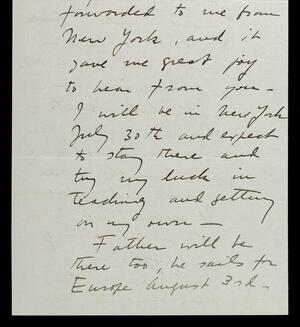 forwarded to me from
New York, and it
gave me great joy
to hear from you—
I will be in New York
July 30th and expect
to stay there and
try my luck in
teaching and getting
on my own—
Father will be
there too, he sails for
Europe August 3rd—